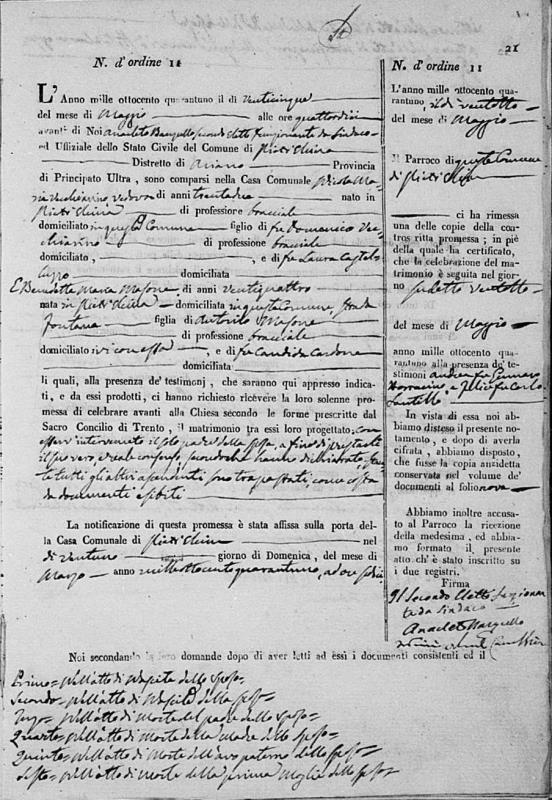 21
N. d'ordine 11
L'Anno mille ottocento quarantuno il di venticinque
del mese di Maggio alle ore quattordici
avanti di Noi Anacleto secondo Eletto funzionante da Sindaco
ed Uffiziale dello Stato Civile del Comune di Pietrelcina
Distretto di Ariano Provincia
di Principato Ultra, sono comparsi nella Casa Comunale Nicola Ma=
ria vedovo di anni trentadue nato in
Pietrelcina di professione bracciale
domiciliato in questo Comune figlio di fu Domenico
di professione bracciale
domiciliato , e di fu Laura
domiciliata
E Benedetta Maria Masone di anni ventiquattro
nata in Pietrelcina domiciliata in questo Comune, strada
Fontana figlia di Antonio Masone
di professione bracciale
domiciliato ivi con essa , e di fu Candida Cardone
domiciliata
li quali, alla presenza de' testimonj, che saranno qui appresso indica-
ti, e da essi prodotti, ci hanno richiesto ricevere la loro solenne pro-
messa di celebrare avanti alla Chiesa secondo le forme prescritte dal
Sacro Concilio di Trento, il matrimonio tra essi loro progettato, con
esservi intervenuto il padre della sposa, a fine di prestarle
il suo consenso hanno dichiarato,
tutti gli altri ascendenti sono trapassati, come costa
da documenti esibiti
La notificazione di questa promessa è stata affissa sulla porta del-
la Casa Comunale di Pietrelcina nel
di ventuno giorno di Domenica, del mese di
Marzo anno milleottocentoquarantuno, ad ore sedici
Noi secondando le loro domande dopo di aver letti ad essi i documenti consistenti ed il
Primo = Nell'atto di Nascita dello sposo =
Secondo = Nell'atto di Nascita della sposa =
Terzo = Nell'atto di Morte del padre dello sposo =
Quarto = Nell'atto di Morte della Madre dello sposo =
Quinto = Nell'atto di Morte dell'avo paterno dello sposo =
Sesto = Nell'atto di Morte della prima Moglie dello sposo =
N. d'ordine 11
L'anno mille ottocento qua-
rantuno, il di ventotto
del mese di Maggio
Il Parroco di questo Comune
di Pietrelcina
ci ha rimessa
una delle copie della con-
tros ritta promessa; in piè
della quale ha certificato,
che la celebrazione del ma-
trimonio è seguita nel gior-
no sudetto ventotto
del mese di Maggio
anno mille ottocento qua-
rantuno alla presenza de' te-
stimoni Andrea fu Gennaro
e Felice fu Carlo
In vista di essa noi ab-
biamo disteso il presente no-
tamento, e dopo di averla
cifrata, abbiamo disposto,
che fusse la copia anzidetta
conservata nel volume de'
documenti al folio nove
Abbiamo inoltre accusa-
to al Parroco la ricezione
della medesima, ed abbia-
mo formato il presente
atto ch' è stato inscritto su
i due registri.
Firma
Il Secondo Eletto funzionan
te da Sindaco
Anacleto